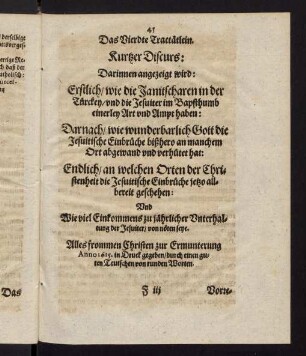 derselbige
Meh
daß der
atholisch:
Das
41
Das Vierdte Tractätlein.
Kurtzer Discurs:
Darinnen angezeigt wird:
Erstlich / wie die Janitscharen in der
Türckey / vnd die Jesuiter im Bapsthumb
einerley Art vnd Ampt haben:
Darnach / wie wunderbarlich Gott die
Jesuitische Einbrüche bißhero an manchem
Ort abgewand vnd verhütet hat:
Endlich / an welchen Orten der Chri-
stenheit die Jesuitische Einbrüche jetzo all-
bereit geschehen:
Vnd
Wie viel Einkommens zu jährlicher Vnterhal-
tung der Jesuiter / von nöten seye.
Alles frommen Christen zur Ermunterung
Anno 1615. in Druck gegeben / durch einen gu-
ten Teutschen / von runden Worten.
F iij
Vorn-